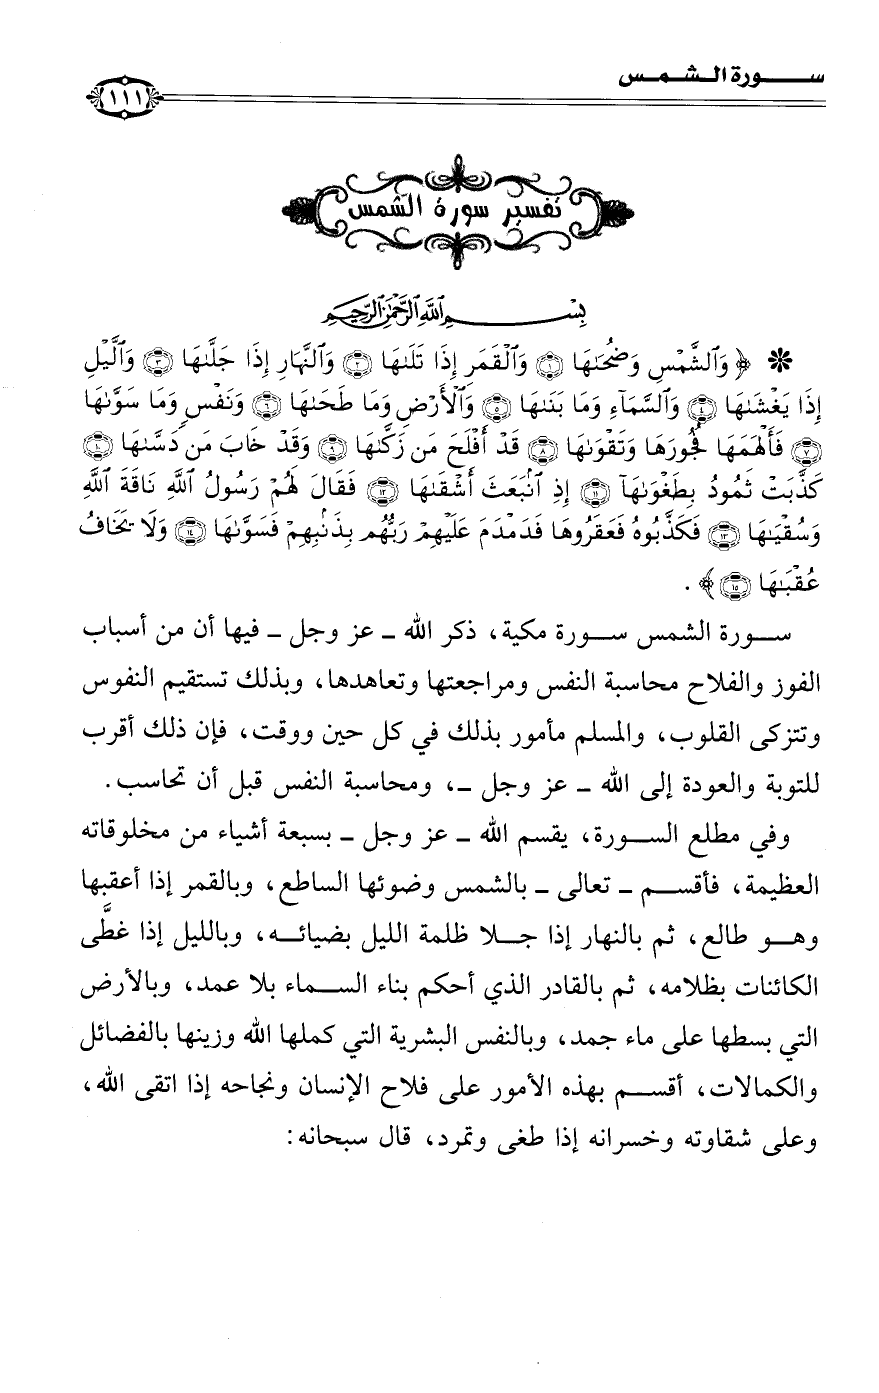 سورة الشمس
١١١
تفسير سورة الشمس
بِسْمِ ٱللَّهِ ٱلرَّحْمَٰنِ ٱلرَّحِيمِ
* ﴿ وَٱلشَّمْسِ وَضُحَىٰهَا ١ وَٱلْقَمَرِ إِذَا تَلَىٰهَا ٢ وَٱلنَّهَارِ إِذَا جَلَّىٰهَا ٣ وَٱلَّيْلِ
إِذَا يَغْشَىٰهَا ٤ وَٱلسَّمَآءِ وَمَا بَنَىٰهَا ٥ وَٱلْأَرْضِ وَمَا طَحَىٰهَا ٦ وَنَفْسٍ وَمَا سَوَّىٰهَا
٧ فَأَلْهَمَهَا فُجُورَهَا وَتَقْوَىٰهَا ٨ قَدْ أَفْلَحَ مَن زَكَّىٰهَا ٩ وَقَدْ خَابَ مَن دَسَّىٰهَا ١٠
كَذَّبَتْ ثَمُودُ بِطَغْوَىٰهَآ ١١ إِذِ ٱنۢبَعَثَ أَشْقَىٰهَا ١٢ فَقَالَ لَهُمْ رَسُولُ ٱللَّهِ نَاقَةَ ٱللَّهِ
وَسُقْيَٰهَا ١٣ فَكَذَّبُوهُ فَعَقَرُوهَا فَدَمْدَمَ عَلَيْهِمْ رَبُّهُم بِذَنۢبِهِمْ فَسَوَّىٰهَا ١٤ وَلَا يَخَافُ
عُقْبَٰهَا ١٥ ﴾ .
سورة الشمس سورة مكية، ذكر الله ـ عز وجل ـ فيها أن من أسباب
الفوز والفلاح محاسبة النفس ومراجعتها وتعاهدها، وبذلك تستقيم النفوس
وتتزكى القلوب، والمسلم مأمور بذلك في كل حين ووقت، فإن ذلك أقرب
للتوبة والعودة إلى الله ـ عز وجل ـ، ومحاسبة النفس قبل أن تحاسب.
وفي مطلع السورة، يقسم الله ـ عز وجل ـ بسبعة أشياء من مخلوقاته
العظيمة، فأقسم ـ تعالى ـ بالشمس وضوئها الساطع، وبالقمر إذا أعقبها
وهو طالع، ثم بالنهار إذا جلا ظلمة الليل بضيائه، وبالليل إذا غطَّى
الكائنات بظلامه، ثم بالقادر الذي أحكم بناء السماء بلا عمد، وبالأرض
التي بسطها على ماء جمد، وبالنفس البشرية التي كملها الله وزينها بالفضائل
والكمالات، أقسم بهذه الأمور على فلاح الإنسان ونجاحه إذا اتقى الله،
وعلى شقاوته وخسرانه إذا طغى وتمرد، قال سبحانه: